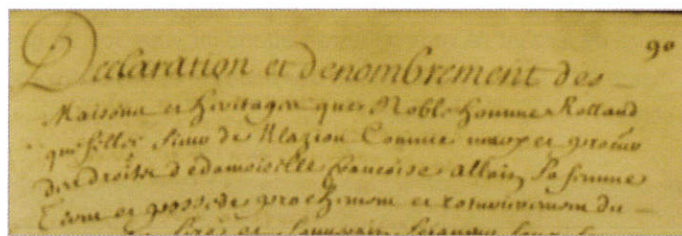 90
Declaration et denombrement des
Maisons et heritages que Noble homme Rolland
quefellec Sieur de Comme mary et
des droits dedamoiselle francoise allain sa femme
Tient et possede prochement et du
et Souverain Seigneur